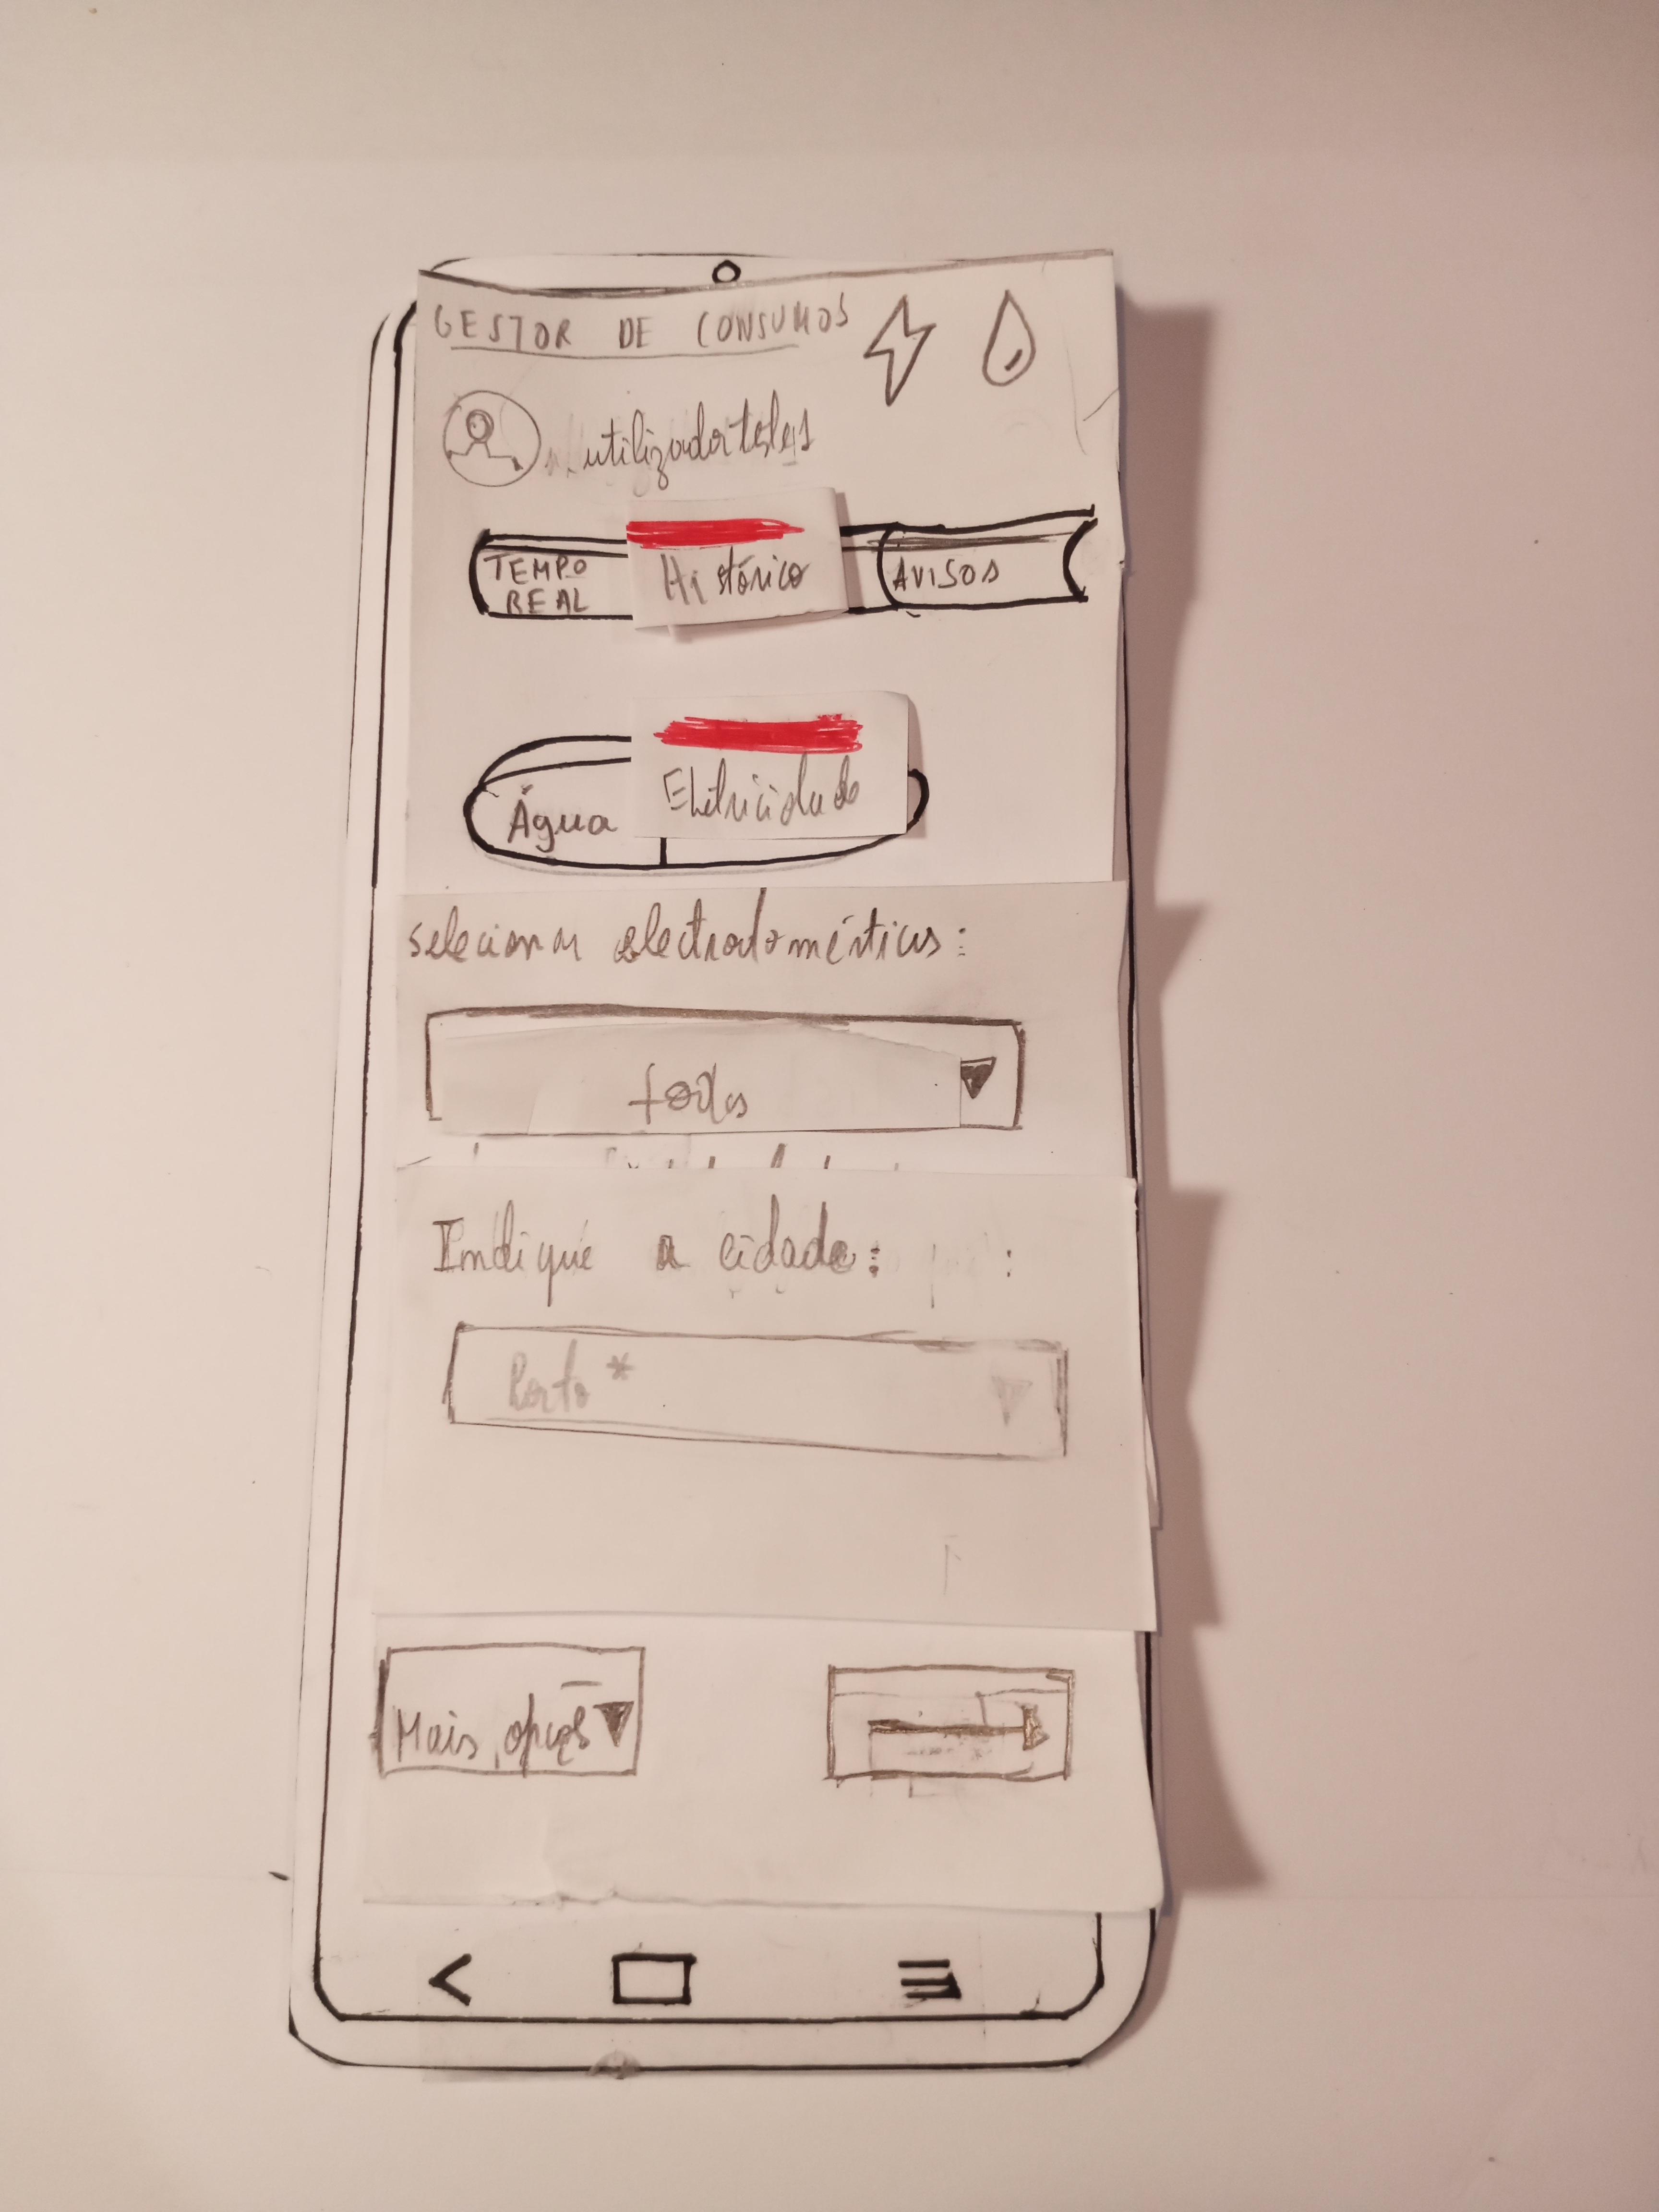 GESTOR DE CONSUMOS
TEMPO
REAL
Histórico
AVISOS
Água
Eletricidade
selecionar electrodomésticos:
todos
Indique a cidade:
Porto *
Mais opções